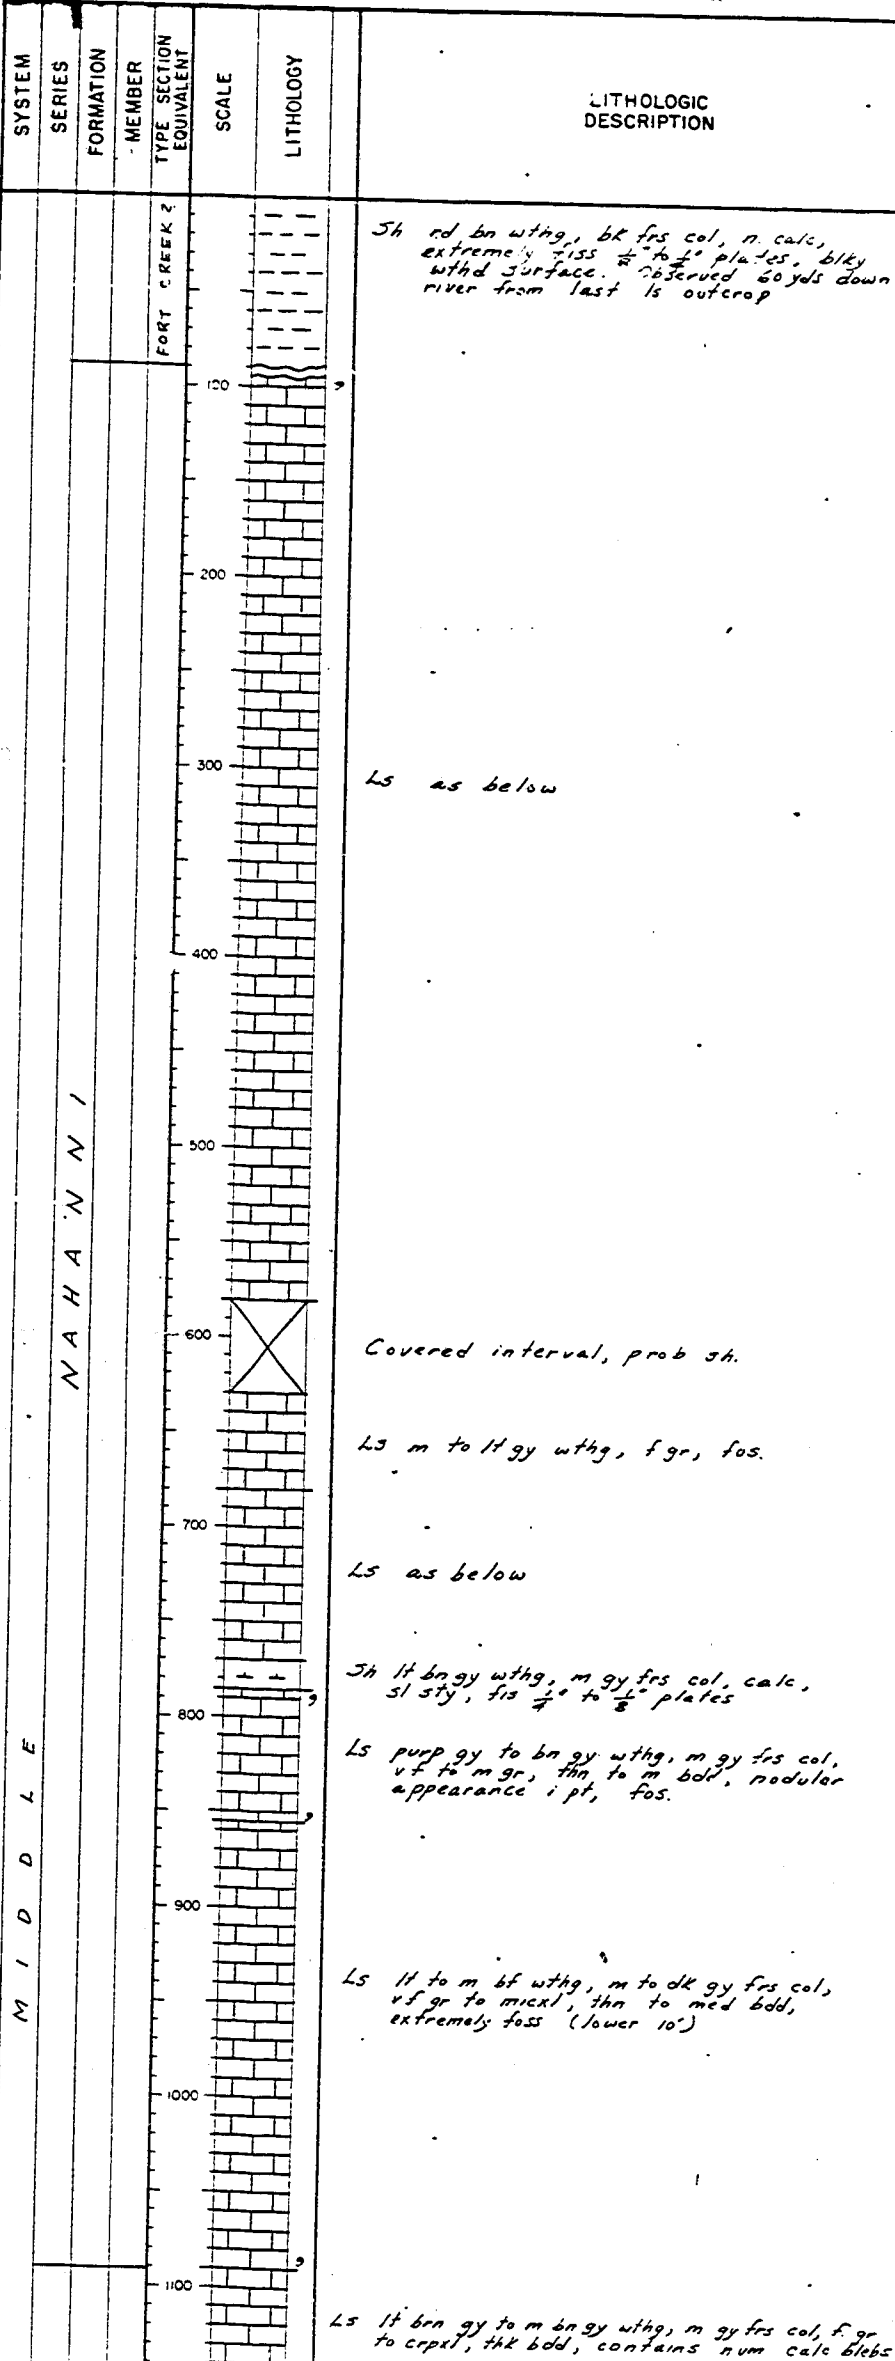 SYSTEM
SERIES
FORMATION
MEMBER
TYPE SECTION
EQUIVALENT
SCALE
LITHOLOGY
LITHOLOGIC
DESCRIPTION
FORT CREEK ?
Sh rd bn wthg, bk frs col, n. calc,
extremely fiss to plates, blky
wthd surface. Observed 60 yds down
river from last ls outcrop
100
200
300
Ls as below
400
500
NAHANNI
600
Covered interval, prob sh.
Ls m to lt gy wthg, f gr, fos.
700
Ls as below
Sh lt bn gy wthg, m gy frs col, calc,
sl sty, fis 1/4" to 1/8" plates
800
Ls purp gy to bn gy wthg, m gy frs col,
vf to m gr, thn to m bdd, nodular
appearance i pt, fos.
MIDDLE
900
Ls lt to m bf wthg, m to dk gy frs col,
vf gr to micxl, thn to med bdd,
extremely foss (lower 10')
1000
1100
Ls lt brn gy to m bn gy wthg, m gy frs col, f. gr
to crpxl, thk bdd, contains num calc blebs